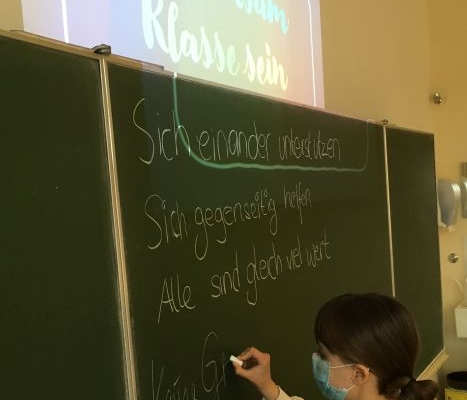 Klasse sein
Sich einander unterstützen
Sich gegenseitig helfen
Alle sind gleich viel wert
Keine G